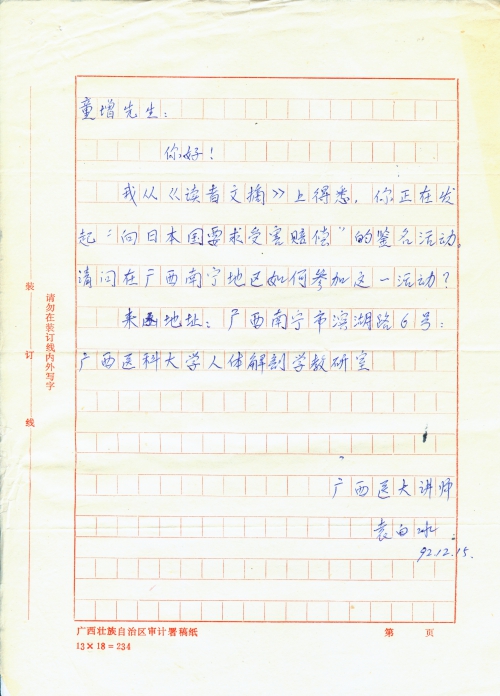 童增先生：
你好！
我从《读者文摘》上得悉，你正在发
起“向日本国要求受害赔偿”的签名活动。
请问在广西南宁地区如何参加这一活动？
来函地址：广西南宁市滨湖路6号：
广西医科大学人体解剖学教研室
广西医大讲师
袁白冰
92.12.15.
装
订
线
请勿在装订线内外写字
广西壮族自治区审计署稿纸
第 页
13×18=234